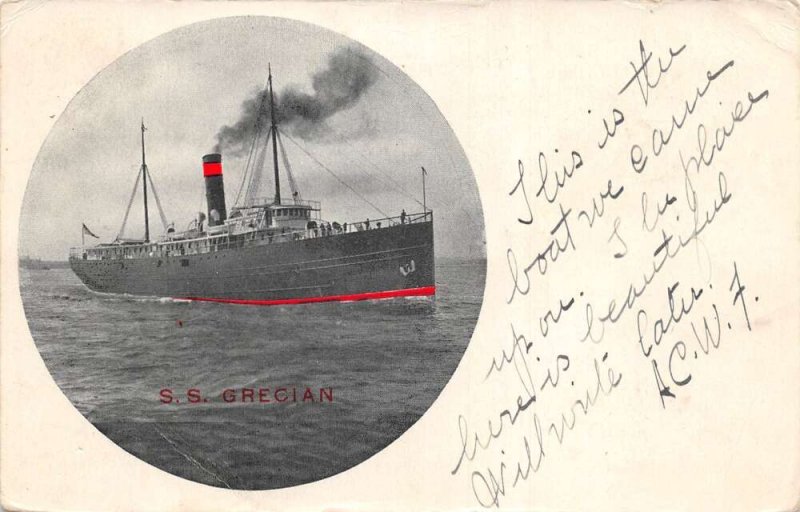 S.S. GRECIAN
This is the
boat we came
up on. The place
here is beautiful
Will write later.
A.C.W.F.